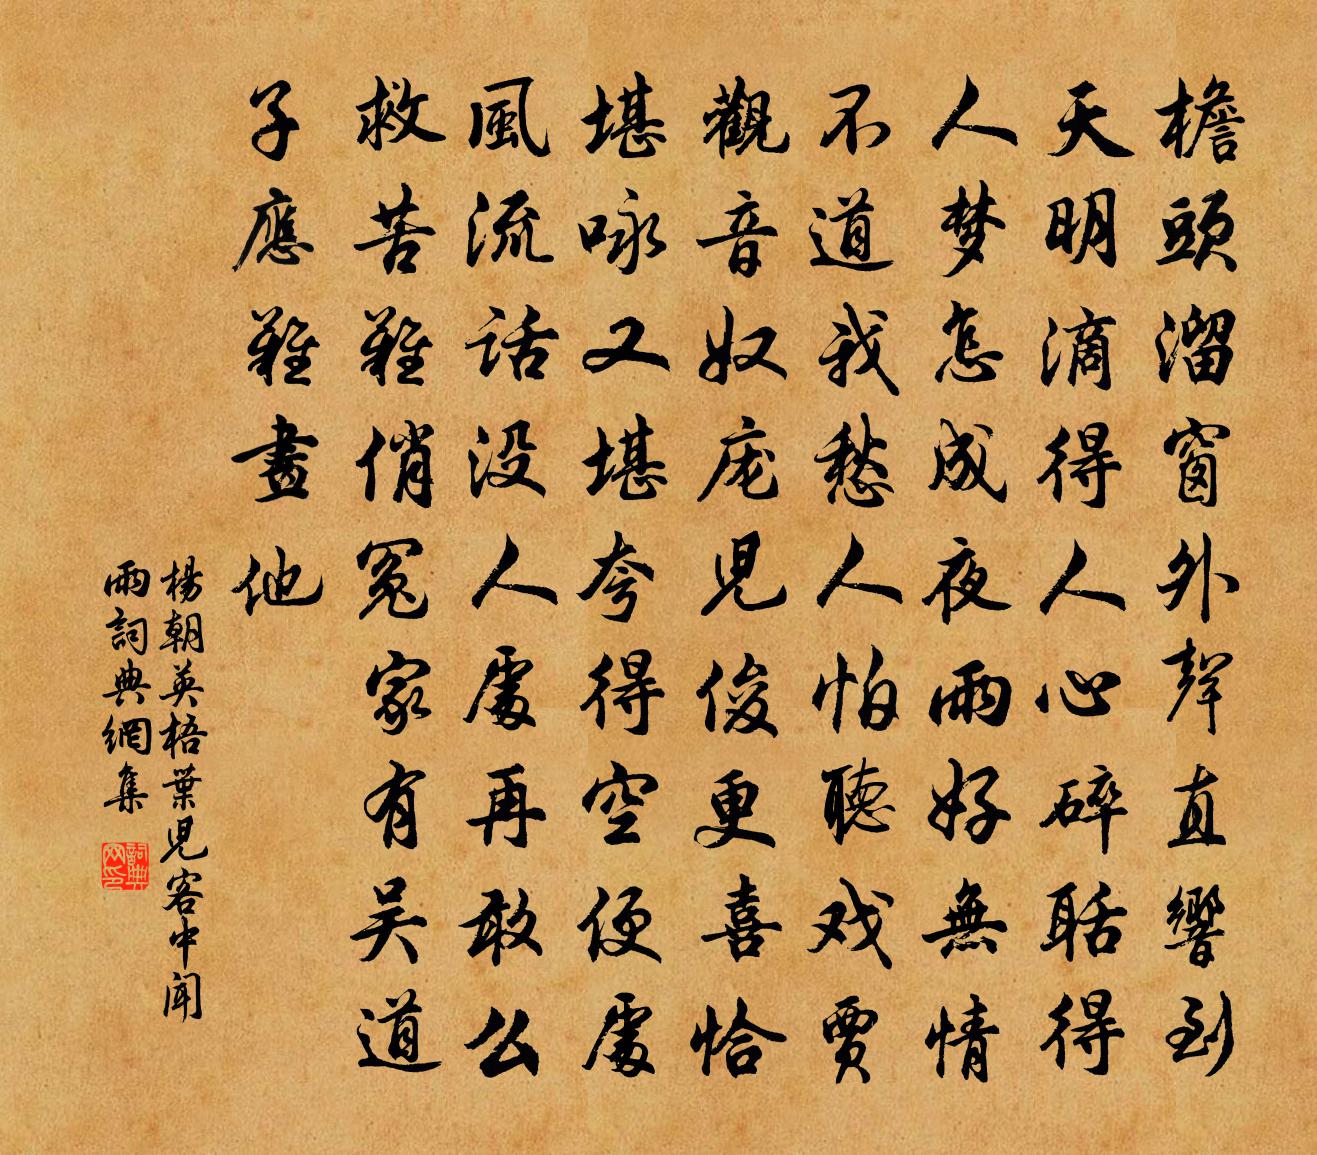 檐頭溜窗外聲直響到
天明滴得人心碎聒得
人梦怎成夜雨好無情
不道我愁人怕聽戏賈
觀音奴庞兒俊更喜恰
堪咏又堪夸得空便處
風流話没人處再敢么
救苦難俏冤家有吴道
子應難畫他
楊朝英梧葉兒客中聞
雨詞典網集
詞典网印